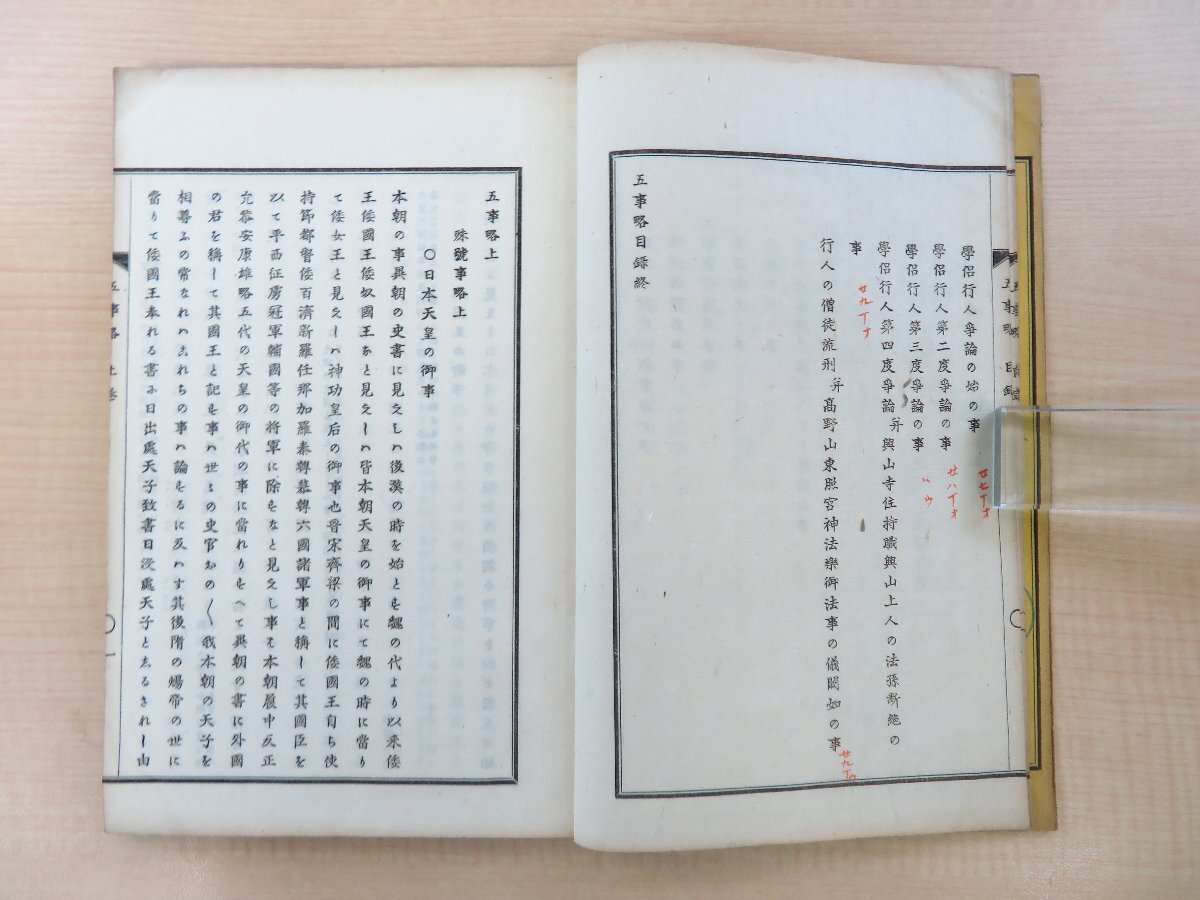 學侶行人爭論の始の事
廿七丁オ
學侶行人第二度爭論の事
廿八丁オ
學侶行人第三度爭論の事
〃ウ
學侶行人第四度爭論幷興山寺住持職興山上人の法孫斷絶の
事
廿九丁オ
行人の僧徒流刑幷高野山東照宮神法樂御法事の儀闕如の事
廿九丁ウ
五事略目録終
五事略 目録
五事略上
殊號事略上
〇日本天皇の御事
本朝の事異朝の史書に見えしハ後漢の時を始とも魏の代より以來倭
王倭國王倭奴國王なと見えしハ皆本朝天皇の御事にて魏の時に當り
て倭女王と見えしハ神功皇后の御事也晉宋齊梁の間に倭國王自ら使
持節都督倭百濟新羅任那加羅秦韓慕韓六國諸軍事と稱して其國臣を
以て平西征虜冠軍輔國等の將軍に除もなと見えし事も本朝履中反正
允恭安康雄略五代の天皇の御代の事に當れりもへて異朝の書に外國
の君を稱して其國王と記も事ハ世々の史官おの〳〵我本朝の天子を
相尋ふの常なれハこれらの事ハ論もるに及ハす其後隋の煬帝の世に
當りて倭國王奉れる書ふ日出處天子致書日沒處天子としるされし由
五事略 上卷
〇一